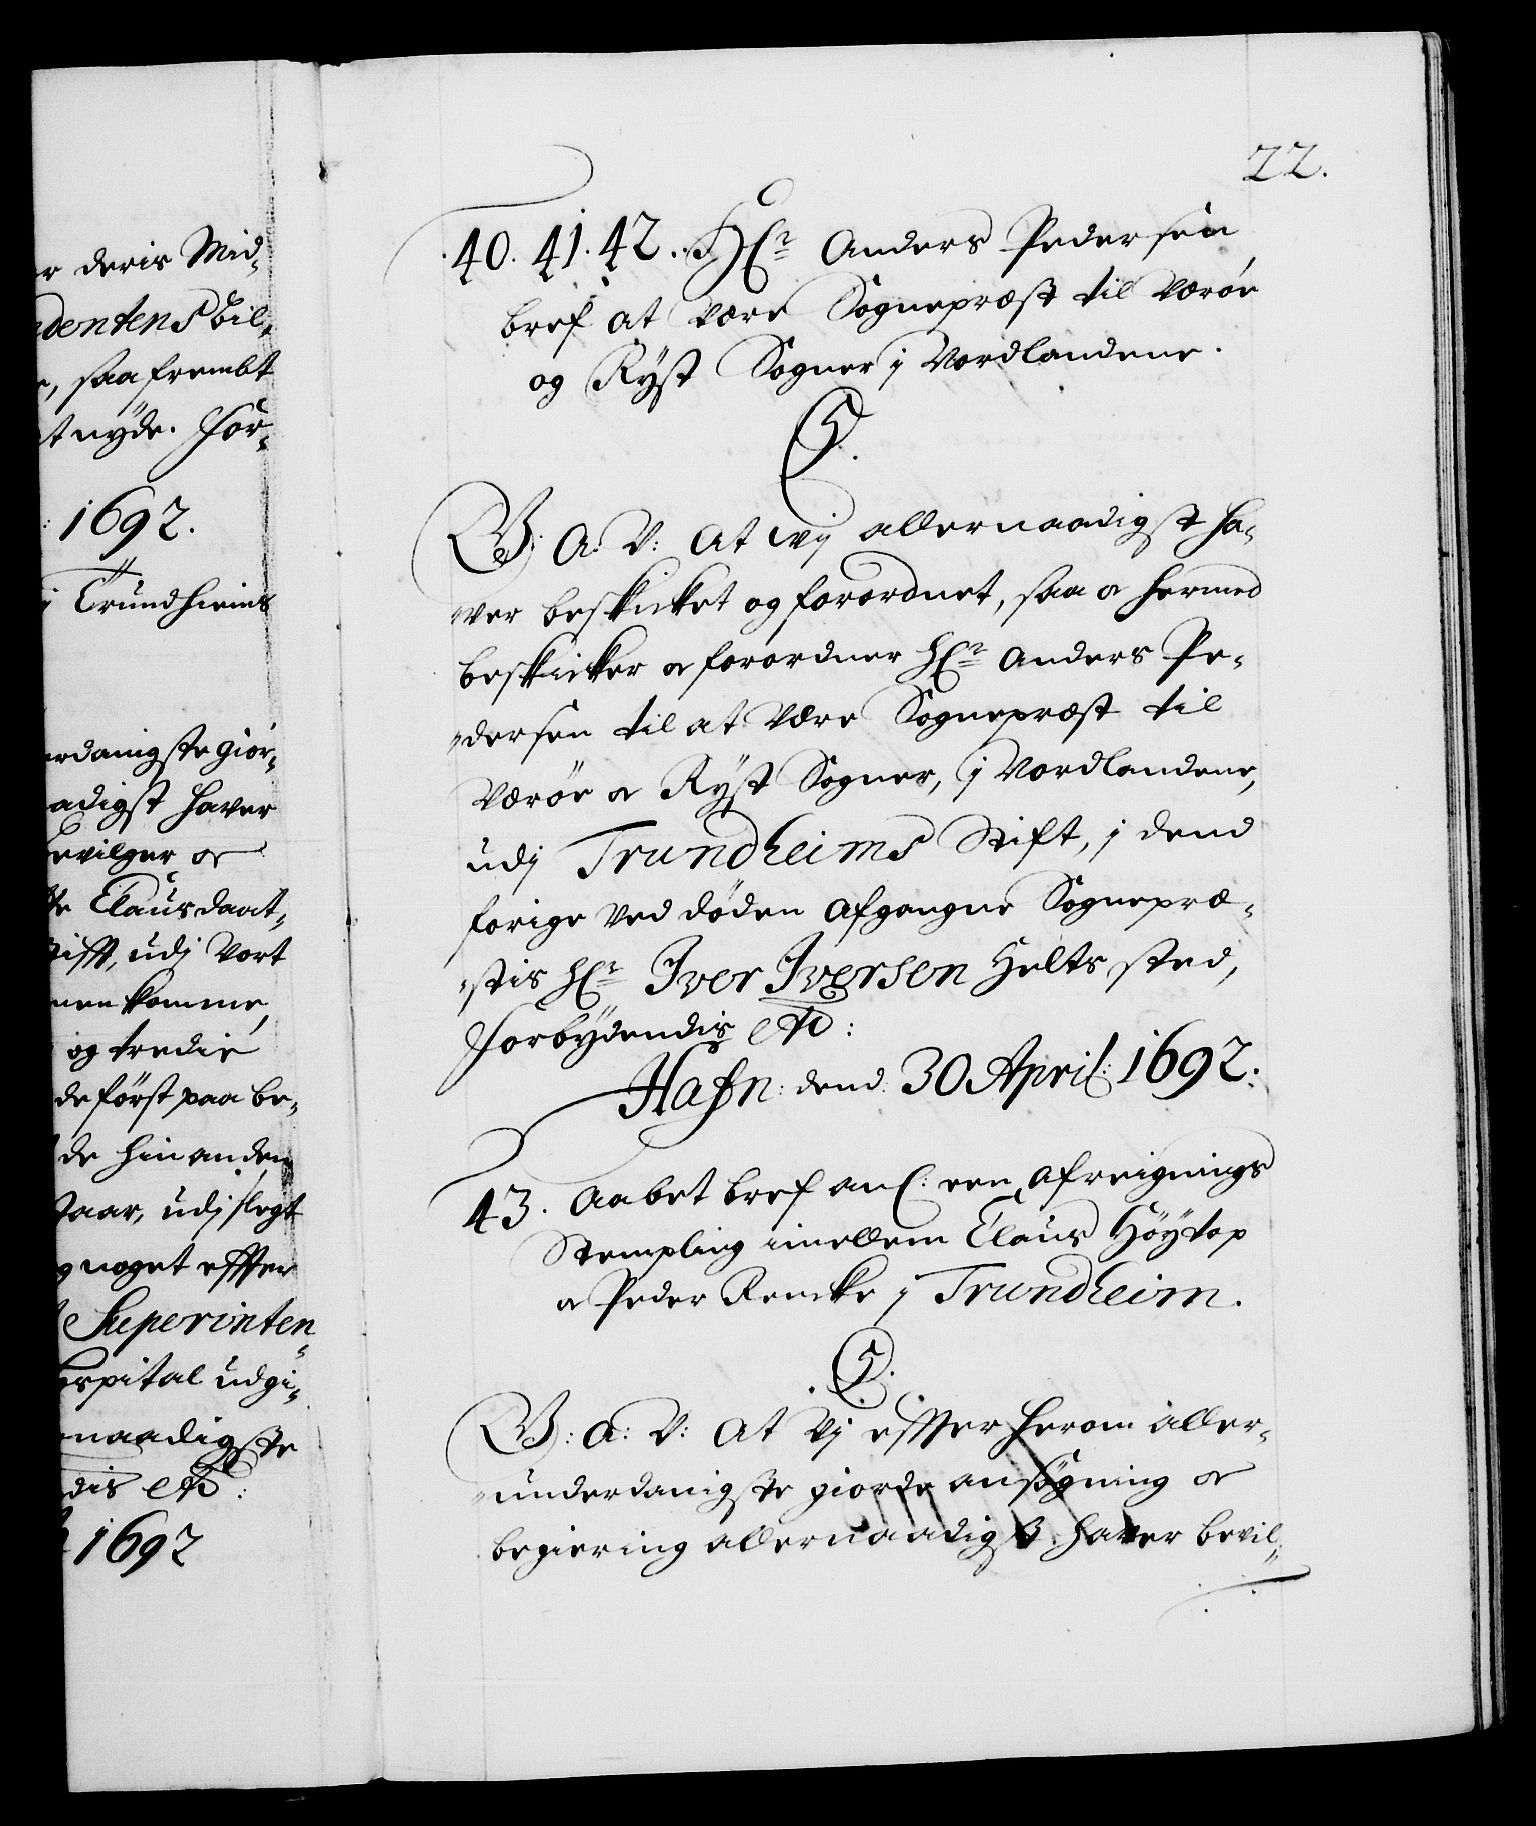 22.
40. 41. 42. Hr Anders Pedersen
bref at være Sognepræst til Værøe
og Ryst Sogner j Nordlandene.
C5.
W: A: V: At wj allernaadigst ha-
ver beskicket og forordnet, saa oc hermed
beskicker oc forordner Hr Anders Pe-
dersen til at være Sognepræst til
Værøe oc Ryst Sogner, j Nordlandene,
udj Trundheims Stift, j dend
forige ved døden afgangne Sognepræ-
stis Hr Iver Iversen Helts sted,
Forbydendis etc:
Hafn: dend. 30 April: 1692.
43. Aabet bref anl: een Afreignings
Stempling imellem Claus Høytop
oc Peder Rencke j Trundheim.
C5.
W: A: V: At Vj effter herom aller-
underdanigste giorde ansøgning oc
begiering allernaadigst haver bevil-
r deris Mid-
dentens bil-
e, saa frembt
t nyde. For-
: 1692.
j Trundhiems
erdanigste giør-
adigst haver
evilger oc
te Claus daat-
tifft, udj Vort
men komme,
og tredie
de først paa be-
de hin anden
Saar, udj slegt
g noget effter
Superinten-
ospital udgi-
naadigste
dis etc:
1692